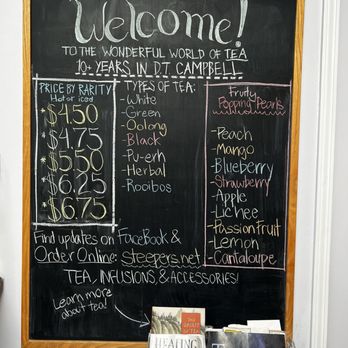 Welcome!
TO THE WONDERFUL WORLD OF TEA
10+ YEARS IN D.T. CAMPBELL
PRICE BY RARITY
Hot or iced
*$4.50
*$4.75
*$5.50
*$6.25
*$6.75
TYPES OF TEA:
-White
-Green
-Oolong
-Black
-Pu-erh
-Herbal
-Rooibos
Fruity
Popping Pearls
-Peach
-Mango
-Blueberry
-Strawberry
-Apple
-Lichee
-Passion Fruit
-Lemon
-Cantaloupe
Find updates on FaceBook &
Order Online: Steepers.net
TEA, INFUSIONS, & ACCESSORIES!
Learn more
about tea!
HEALING